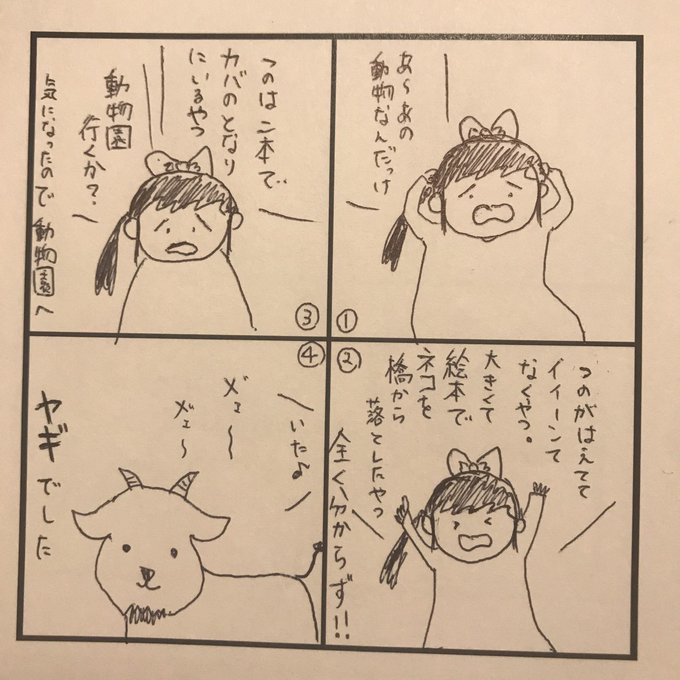 ①
あ〜あの
動物なんだっけ
②
つのがはえてて
イィーンて
なくやつ。
大きくて
絵本で
ネコを
橋から
落としたやつ
全く分からず!!
③
つのは二本で
カバのとなり
にいるやつ
動物園
行くか?
気になったので動物園へ
④
いた♪
メェ〜
メェ〜
ヤギでした